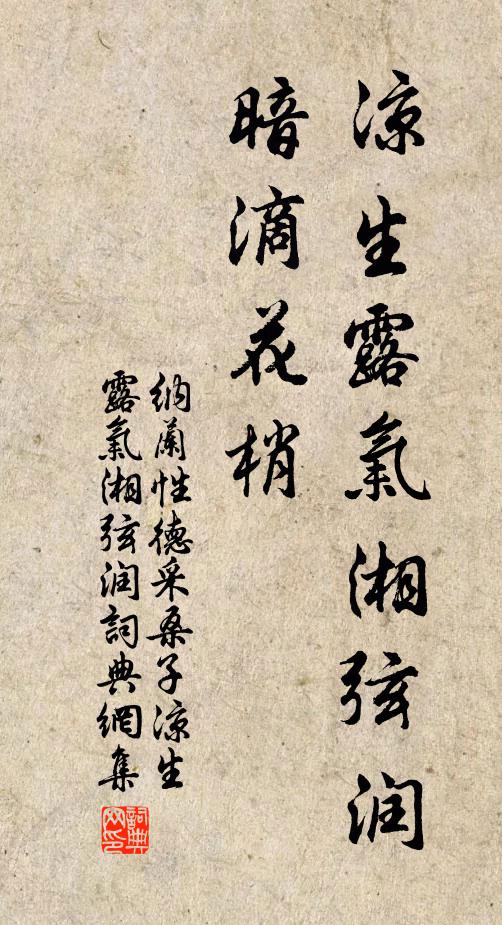 凉生露氣湘弦润
暗滴花梢
纳蘭性德采桑子凉生
露氣湘弦润詞典網集
詞典
网印